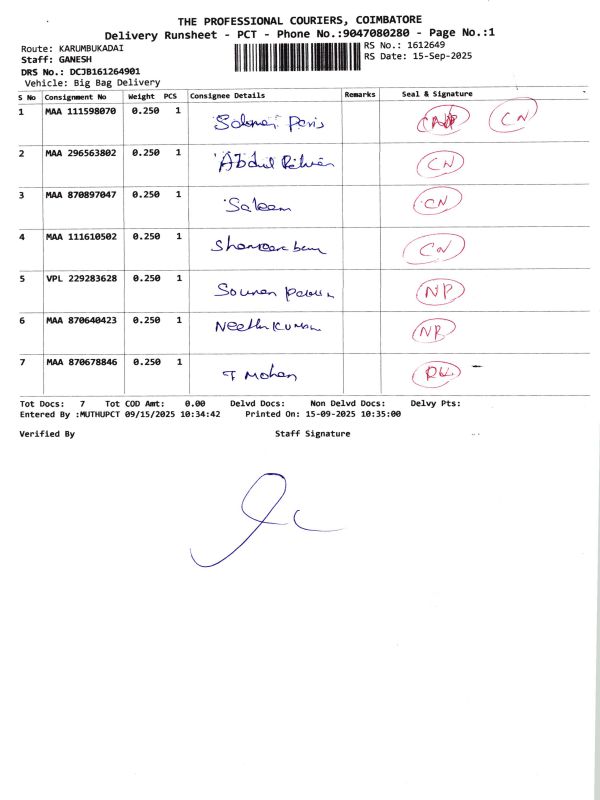 THE PROFESSIONAL COURIERS, COIMBATORE
Delivery Runsheet - PCT - Phone No.:9047080280 - Page No.:1
Route: KARUMBUKADAI
RS No.: 1612649
Staff: GANESH
RS Date: 15-Sep-2025
DRS No.: DCJB161264901
Vehicle: Big Bag Delivery
S No Consignment No Weight PCS Consignee Details Remarks Seal & Signature
1 MAA 111598070 0.250 1 CN
2 MAA 296563802 0.250 1 Abdul CN
3 MAA 870897047 0.250 1 Saleem CN
4 MAA 111610502 0.250 1 CN
5 VPL 229283628 0.250 1 NP
6 MAA 870640423 0.250 1 Neethu Kumar NP
7 MAA 870678846 0.250 1 T Mohan
Tot Docs: 7 Tot COD Amt: 0.00 Delvd Docs: Non Delvd Docs: Delvy Pts:
Entered By :MUTHUPCT 09/15/2025 10:34:42 Printed On: 15-09-2025 10:35:00
Verified By Staff Signature